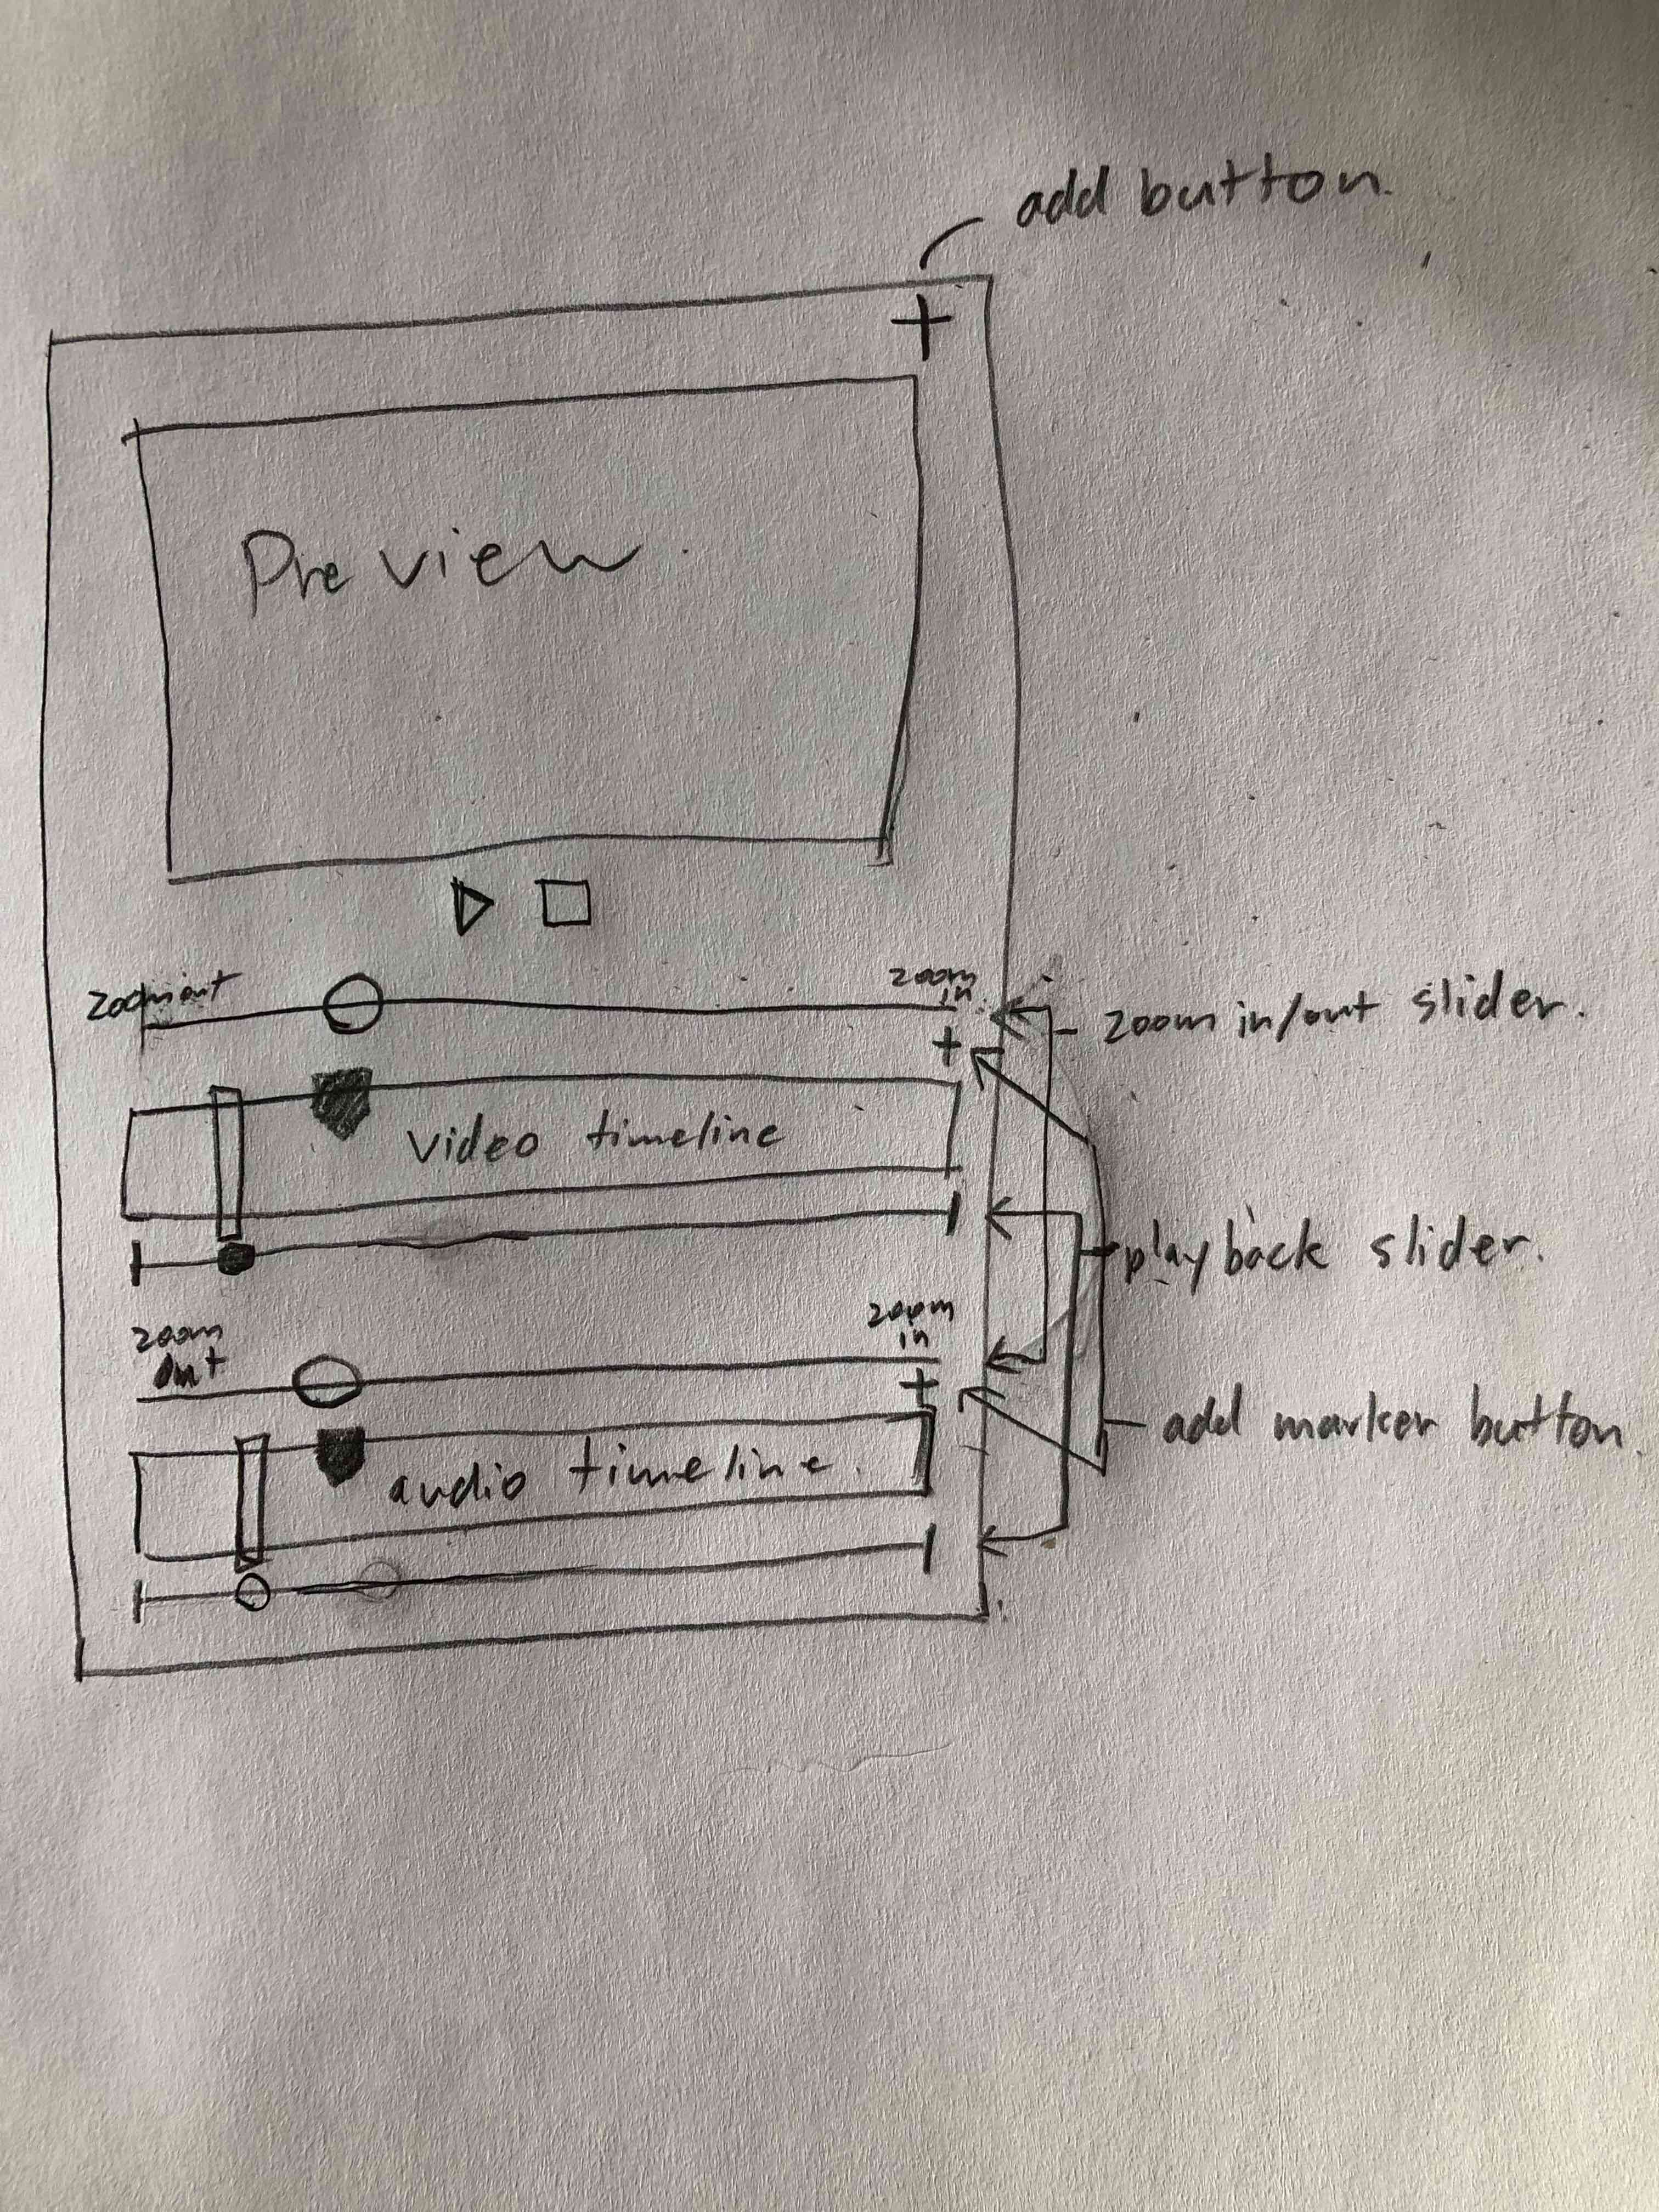 add button.
+
Preview.
zoom out
zoom
in.
zoom in/out slider.
+
video timeline
playback slider.
zoom
out
zoom
in
+
add marker button.
audio timeline.